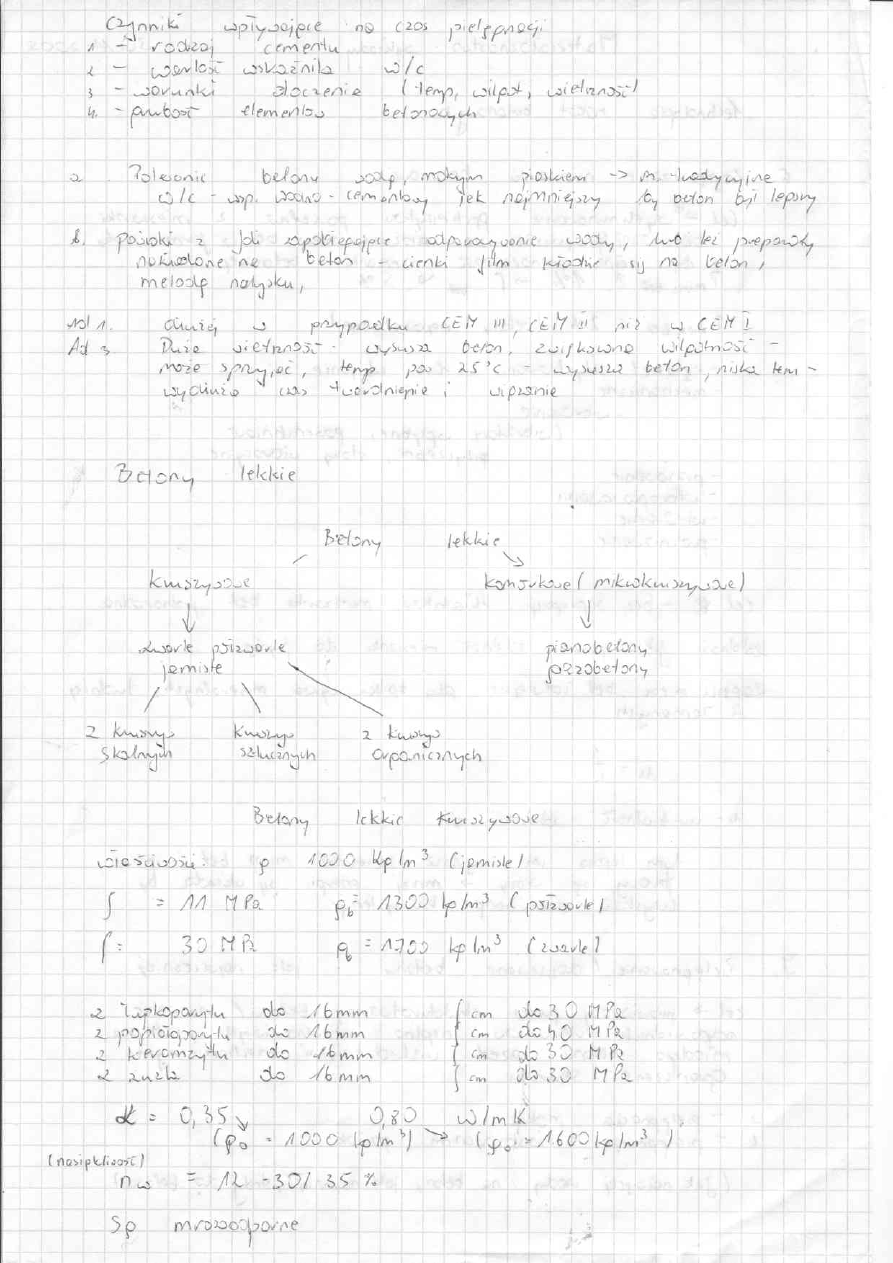 Czynniki wpływające na czas pielęgnacji
1 - rodzaj cementu
2 - wartość wskaźnika w/c
3 - warunki otoczenia (temp, wilgot, wietrzność)
4. - grubość elementów betonowych
a. Polewanie betonu wodą, mokrym piaskiem -> m. tradycyjne
w/c - wsp. wodno-cementowy jak najmniejszy by beton był lepszy
b. powłoki z folii zapobiegające odparowywanie wody, lub też preparaty
nakładane na beton - cienki film kładzie się na beton,
metodą natysku,
Ad 1. dłużej w przypadku CEM III, CEM II niż w CEM I
Ad 3. Duża wietrzność - wysusza beton, zwiększona wilgotność -
może sprzyjać, temp pow 25°C - wysusza beton, niska tem -
wydłuża czas twardnienie i wiązanie
Betony lekkie
Betony lekkie
kruszywowe komórkowe (mikrokruszywowe)
zwarte półzwarte pianobetony
jamiste gazobetony
z kruszyw kruszyw z kruszyw
skalnych sztucznych organicznych
Betony lekkie kruszywowe
właściwości: ρ 1000 kg/m³ (jamiste)
f = 11 MPa ρb = 1300 kg/m³ (półzwarte)
f = 30 MPa ρb = 1700 kg/m³ (zwarte)
z łupkoporytu do 16mm fcm do 30 MPa
z popiołoporytu do 16mm fcm do 40 MPa
z keramzytu do 16mm fcm do 30 MPa
z żużla do 16mm fcm do 30 MPa
α = 0,35 0,80 W/mK
(ρo = 1000 kg/m³) → (ρo = 1600 kg/m³)
(nasiąkliwość)
nw = 12 - 30/35 %
Są mrozoodporne